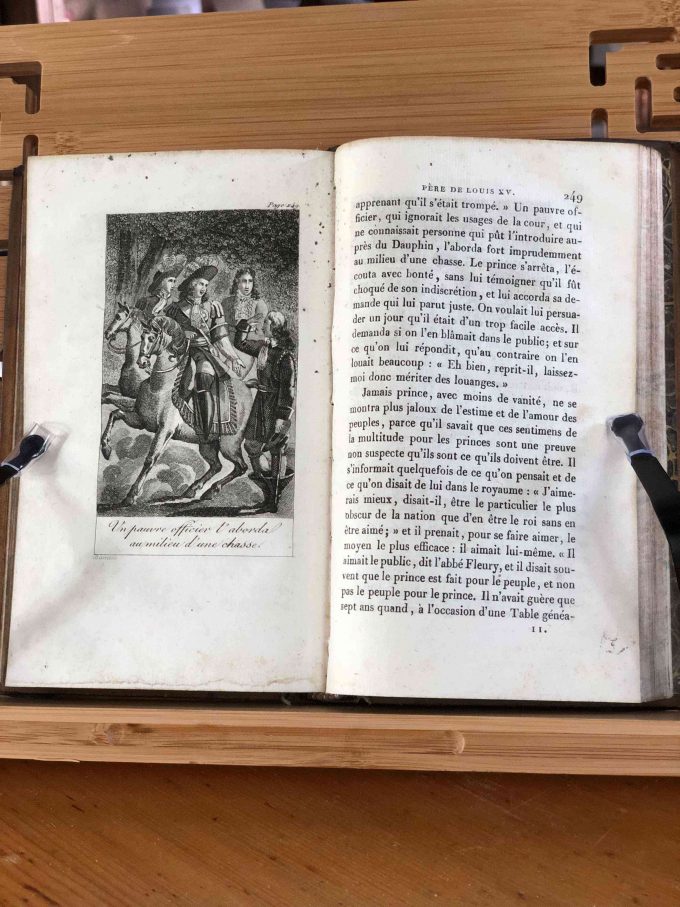 Page 249
Un pauvre officier l'aborda
au milieu d'une chasse.
PÈRE DE LOUIS XV.
249
apprenant qu'il s'était trompé. » Un pauvre of-
ficier, qui ignorait les usages de la cour, et qui
ne connaissait personne qui pût l'introduire au-
près du Dauphin, l'aborda fort imprudemment
au milieu d'une chasse. Le prince s'arrêta, l'é-
couta avec bonté, sans lui témoigner qu'il fût
choqué de son indiscrétion, et lui accorda sa de-
mande qui lui parut juste. On voulait lui persua-
der un jour qu'il était d'un trop facile accès. Il
demanda si on l'en blâmait dans le public; et sur
ce qu'on lui répondit, qu'au contraire on l'en
louait beaucoup : « Eh bien, reprit-il, laissez-
moi donc mériter des louanges. »
Jamais prince, avec moins de vanité, ne se
montra plus jaloux de l'estime et de l'amour des
peuples, parce qu'il savait que ces sentimens de
la multitude pour les princes sont une preuve
non suspecte qu'ils sont ce qu'ils doivent être. Il
s'informait quelquefois de ce qu'on pensait et de
ce qu'on disait de lui dans le royaume : « J'aime-
rais mieux, disait-il, être le particulier le plus
obscur de la nation que d'en être le roi sans en
être aimé; » et il prenait, pour se faire aimer, le
moyen le plus efficace : il aimait lui-même. « Il
aimait le public, dit l'abbé Fleury, et il disait sou-
vent que le prince est fait pour le peuple, et non
pas le peuple pour le prince. Il n'avait guère que
sept ans quand, à l'occasion d'une Table généa-
11.